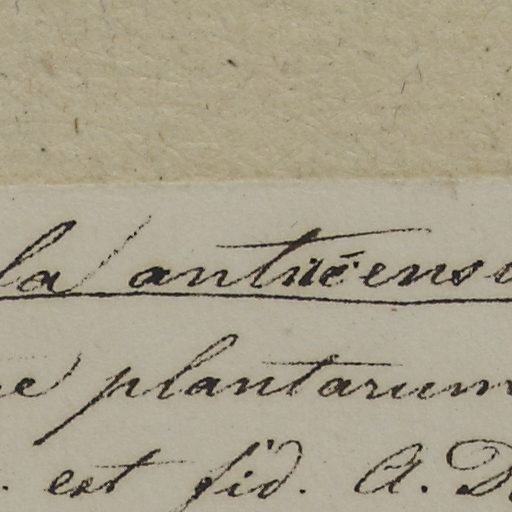 la antucensi
plantarum
est fid. A.